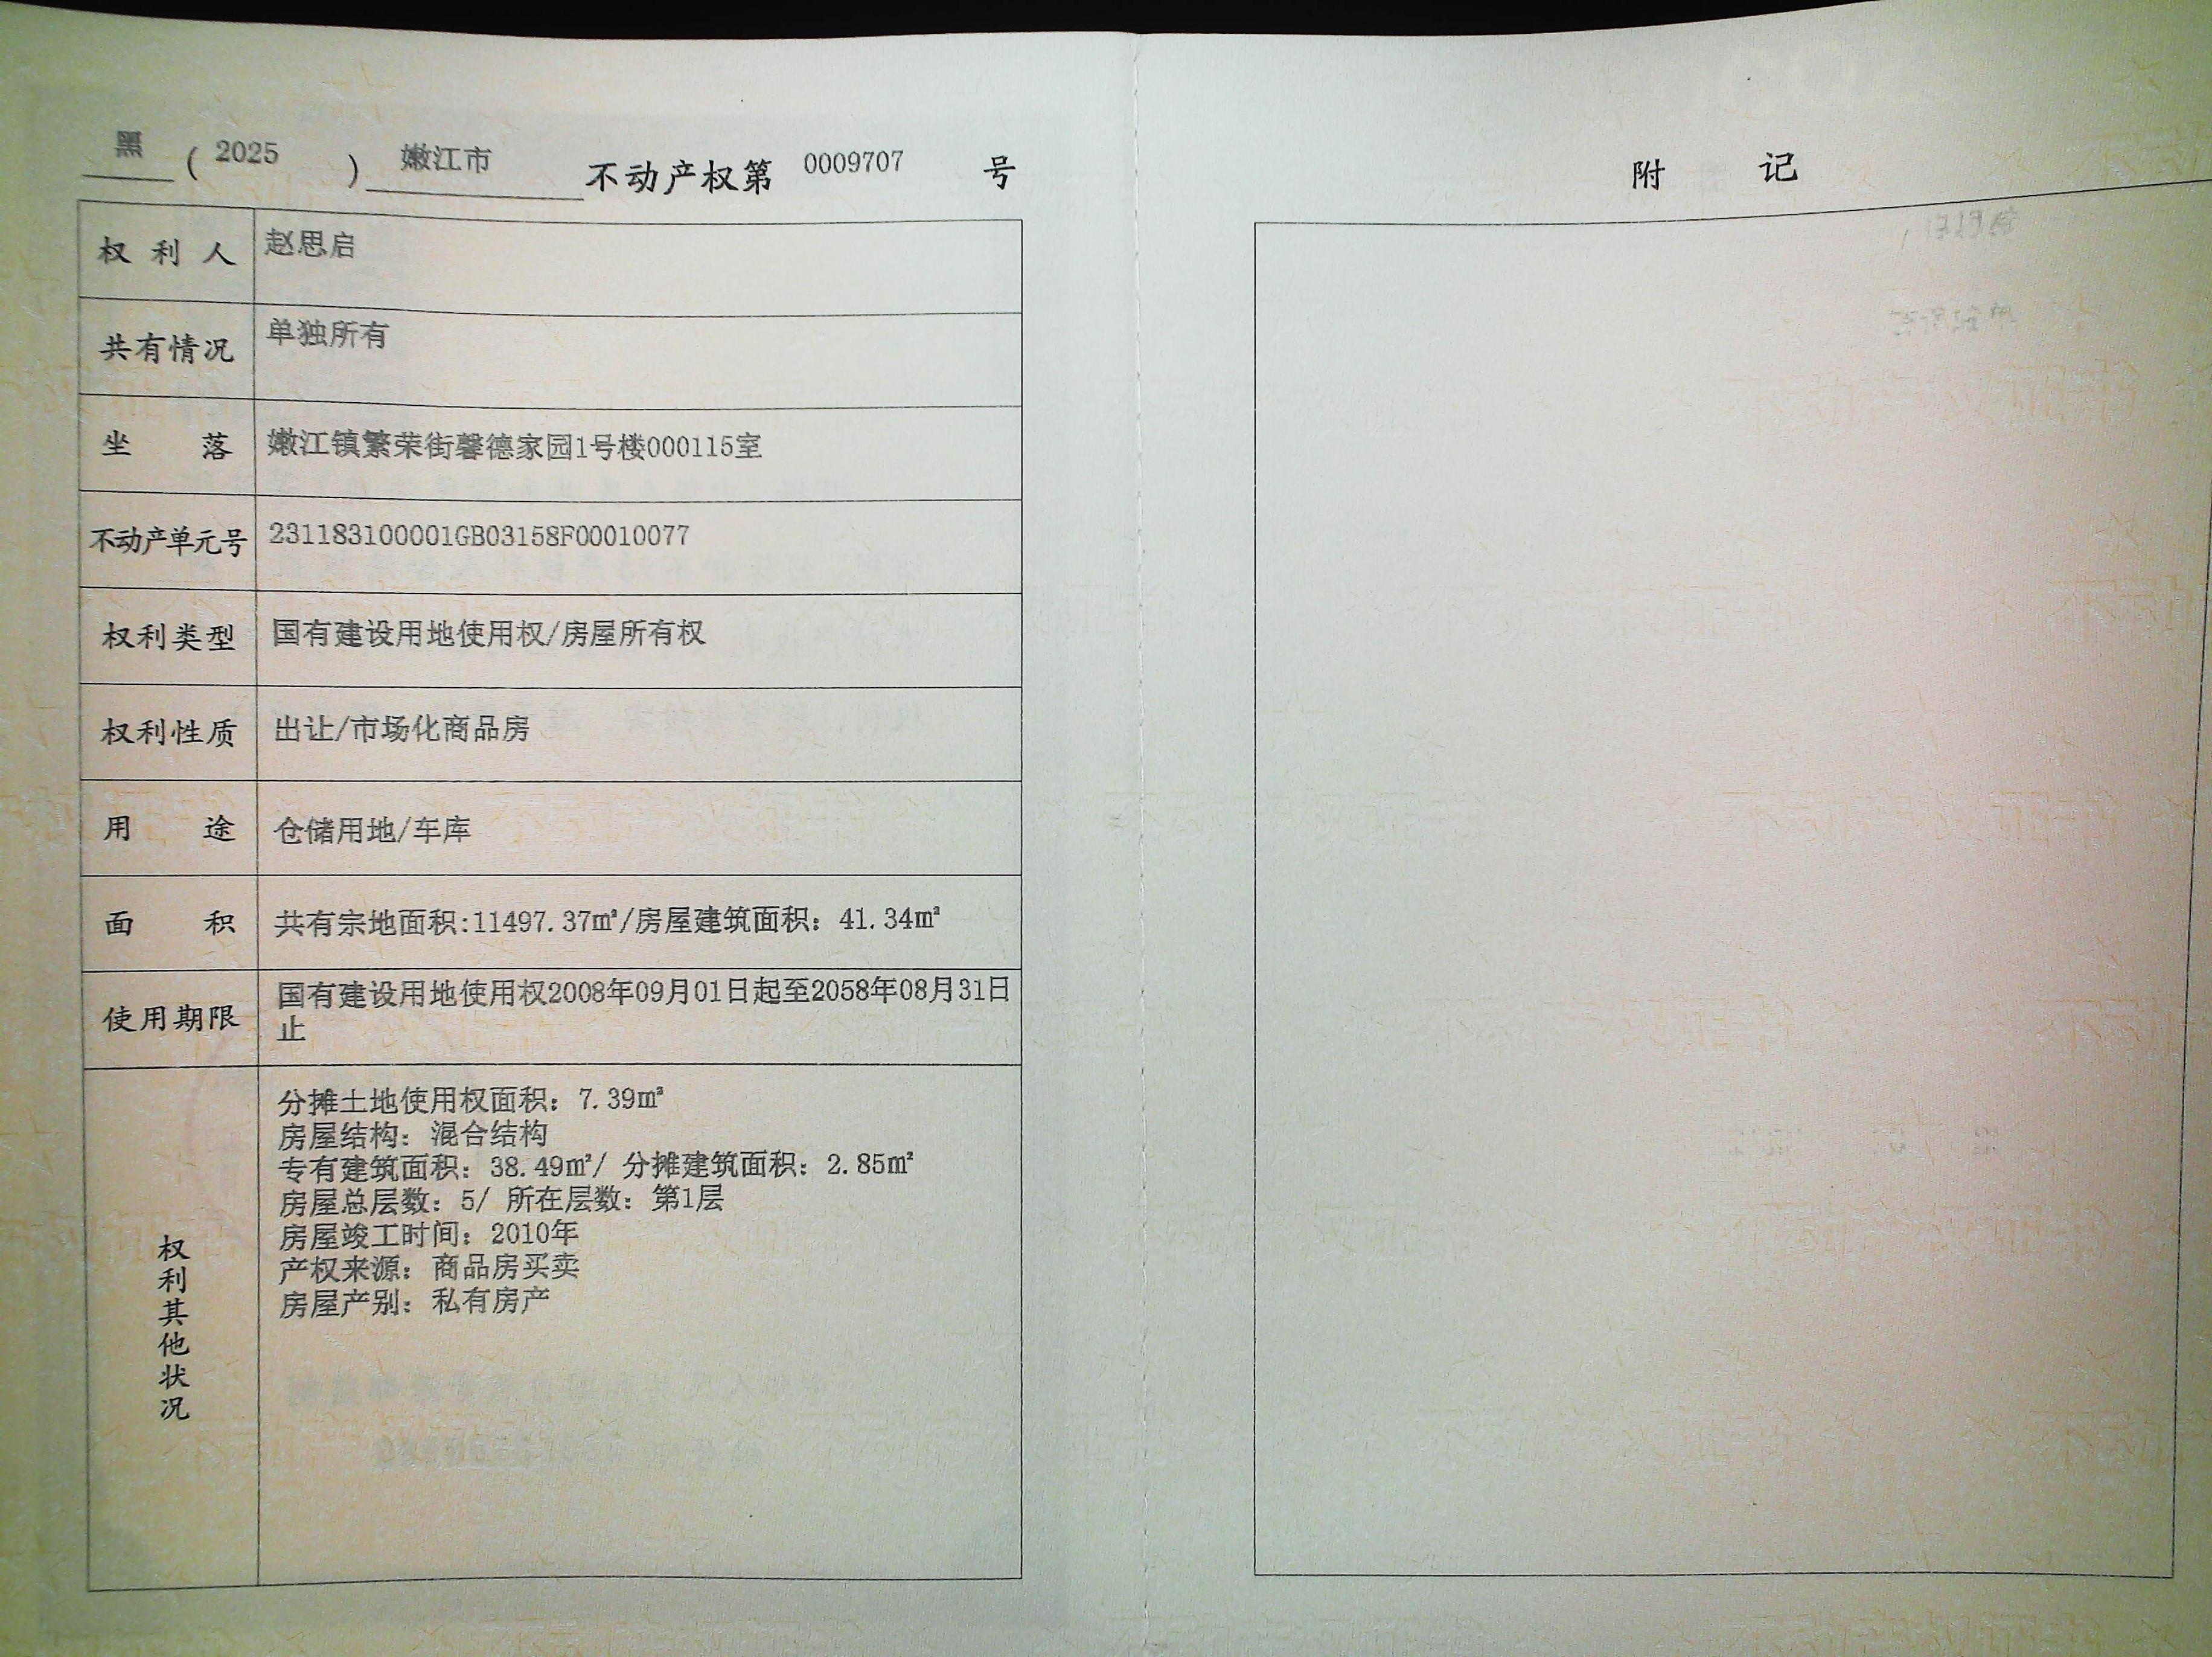 黑 ( 2025 ) 嫩江市 不动产权第 0009707 号
权利人 赵思启
共有情况 单独所有
坐落 嫩江镇繁荣街馨德家园1号楼000115室
不动产单元号 231183100001GB03158F00010077
权利类型 国有建设用地使用权/房屋所有权
权利性质 出让/市场化商品房
用途 仓储用地/车库
面积 共有宗地面积:11497.37㎡/房屋建筑面积：41.34㎡
使用期限 国有建设用地使用权2008年09月01日起至2058年08月31日
止
权利其他状况
分摊土地使用权面积：7.39㎡
房屋结构：混合结构
专有建筑面积：38.49㎡/ 分摊建筑面积：2.85㎡
房屋总层数：5/ 所在层数：第1层
房屋竣工时间：2010年
产权来源：商品房买卖
房屋产别：私有房产
附记